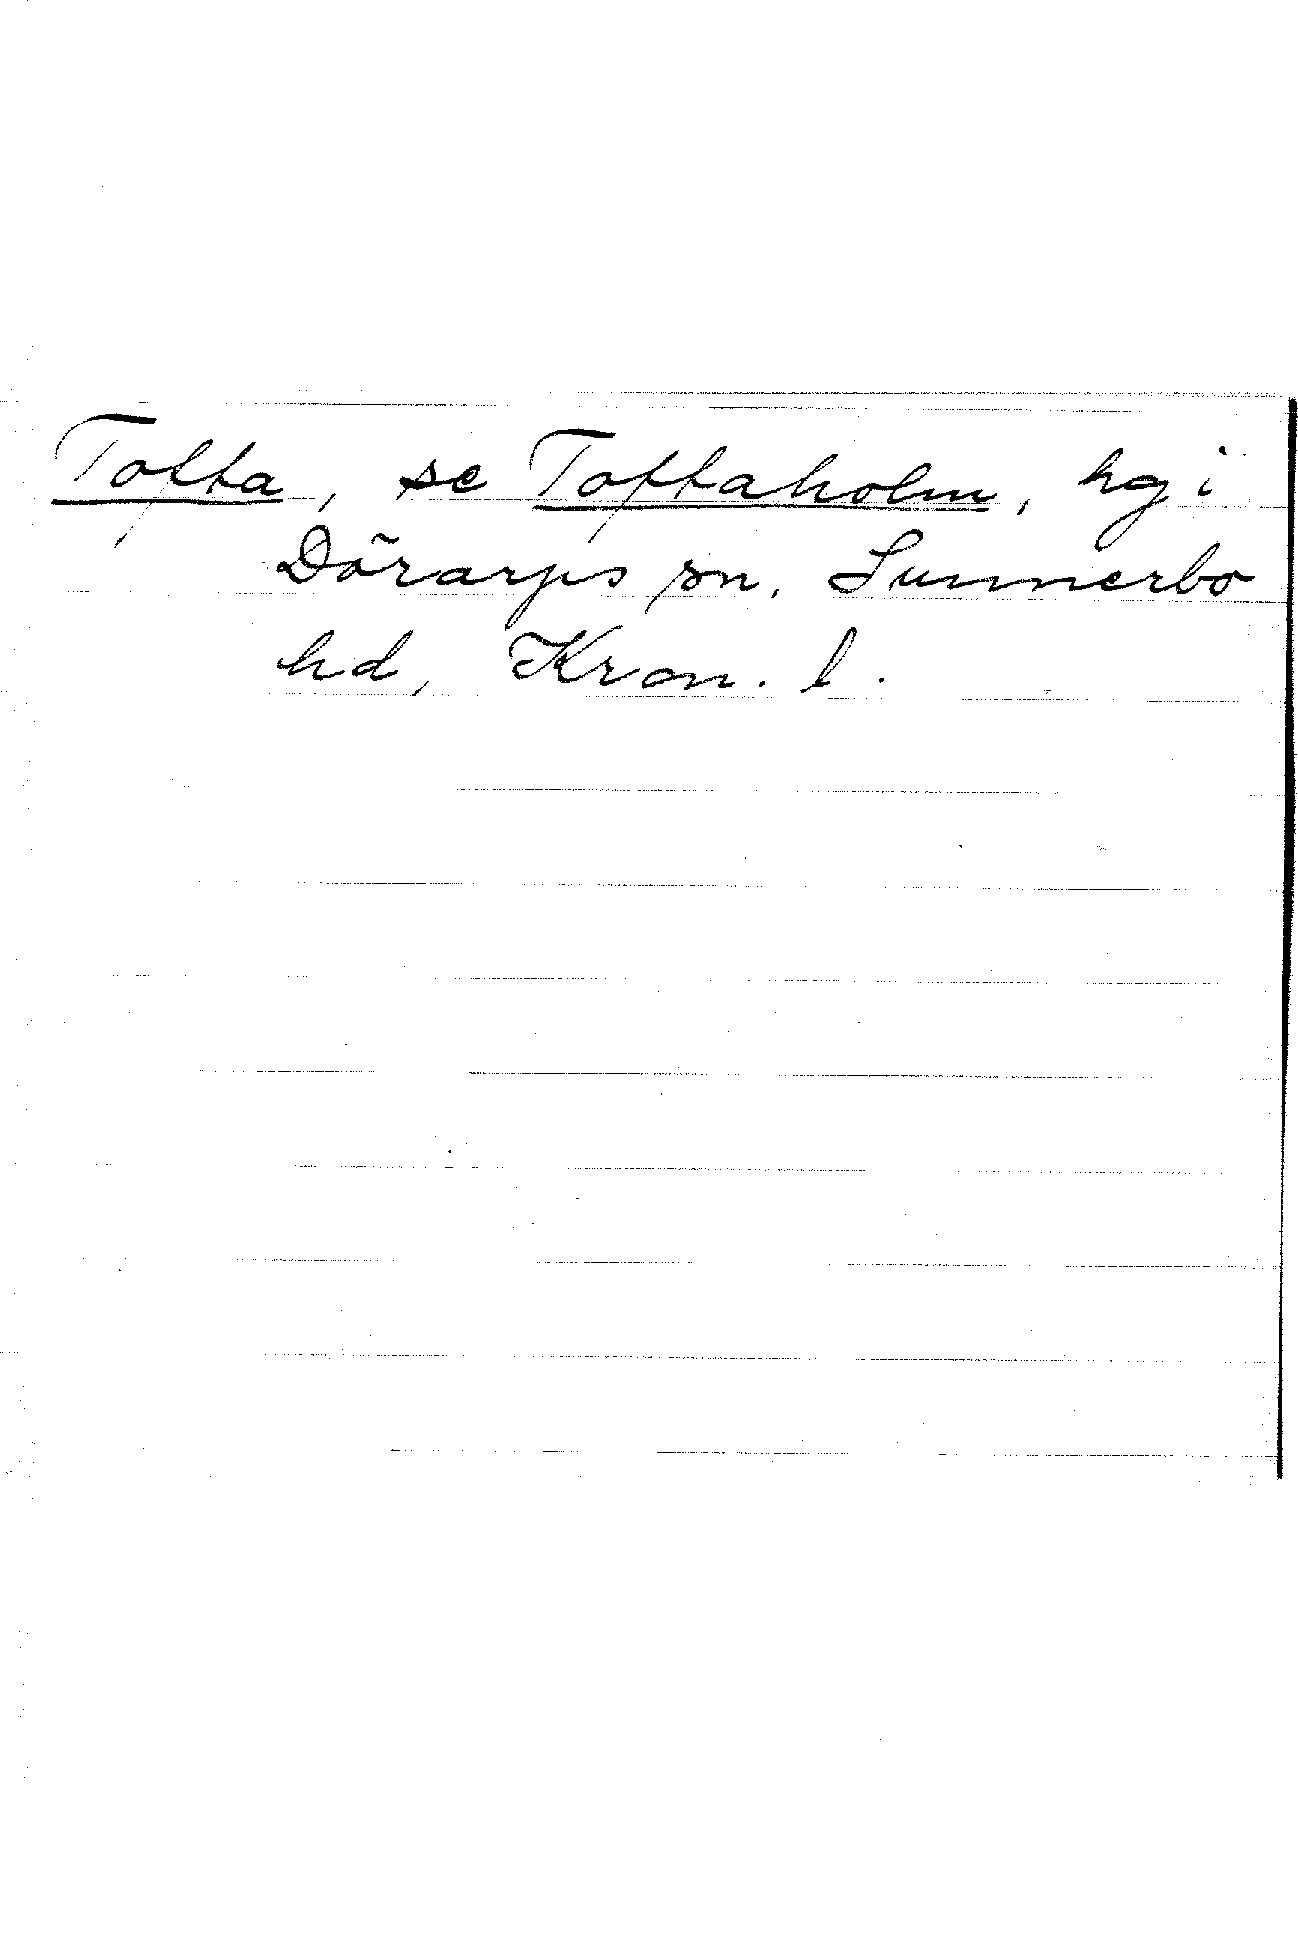 Tofta, se Toftaholm, hg i
Dörarps sn, Sunnerbo
hd, Kron. l.